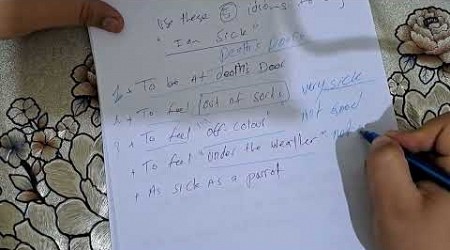 Use these 5 idioms to
"I am Sick"
Death's Door
1 + To be At death's Door
+ To feel out of sorts very sick
3 + To feel "off colour" not good
+ To feel "under the weather" not
+ As sick As a parrot